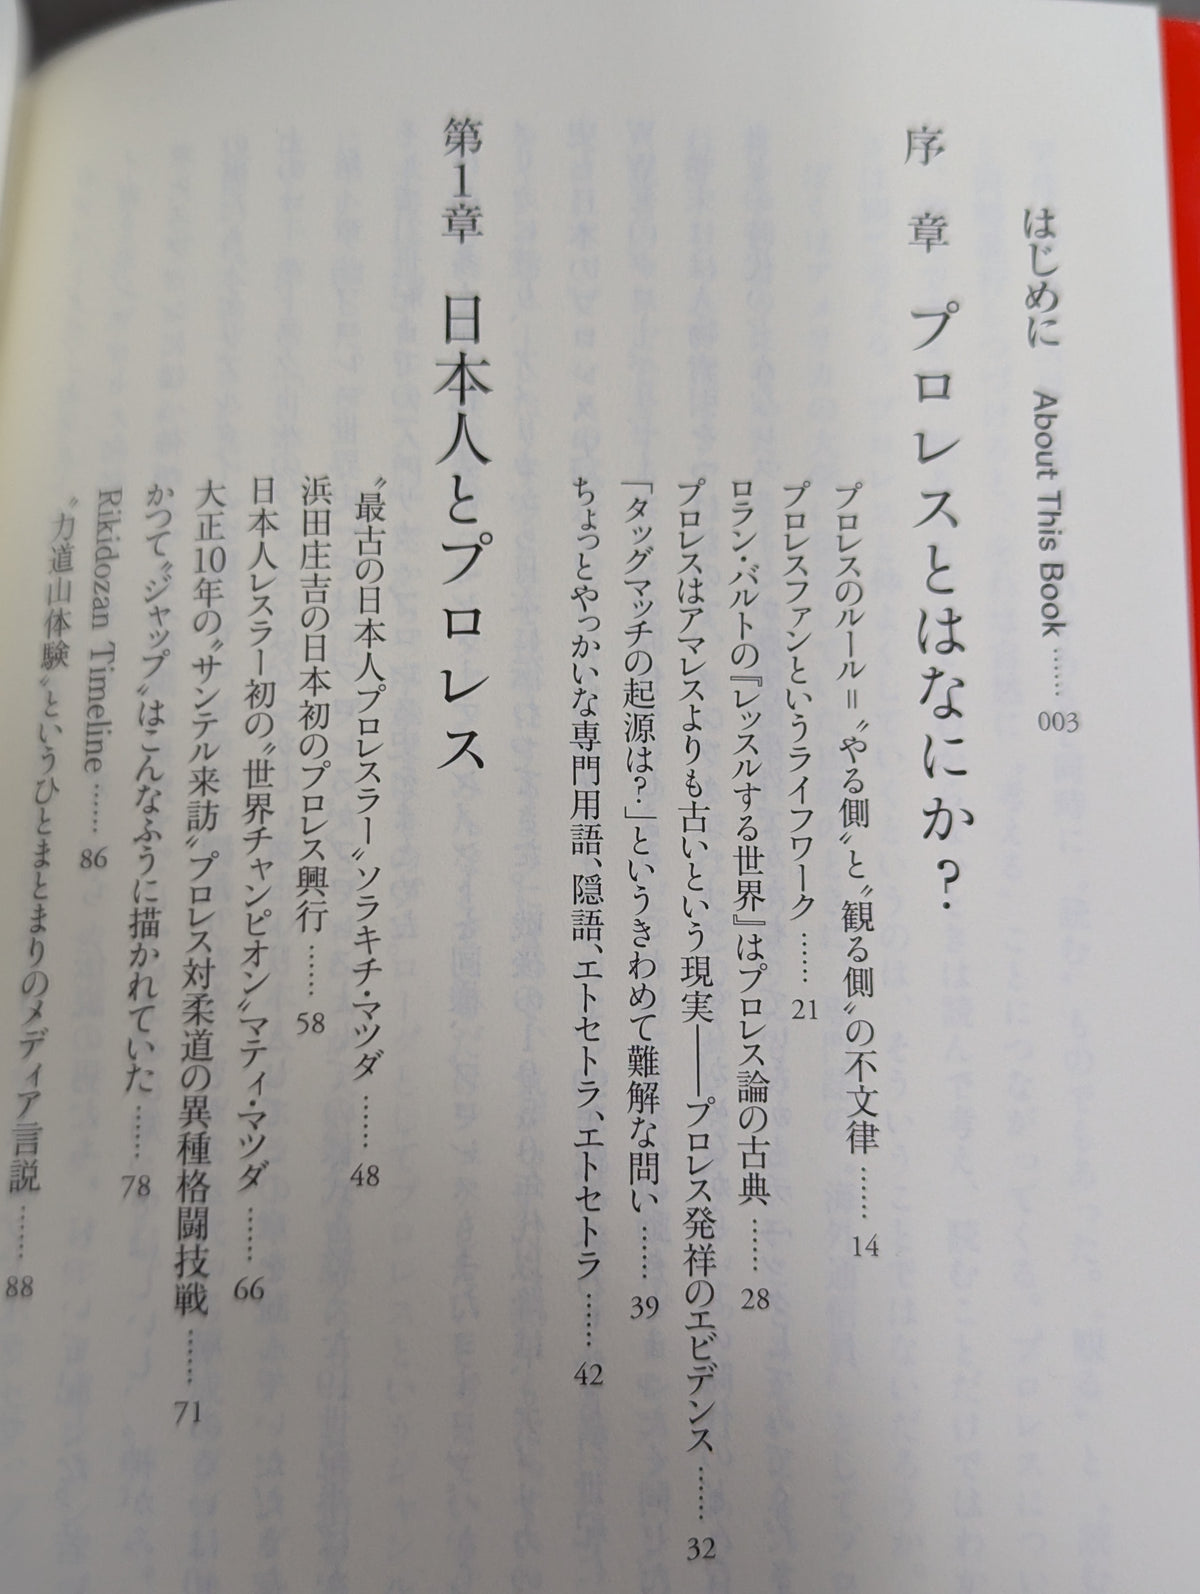 はじめに　About This Book …… 003
序　章　プロレスとはなにか？
プロレスのルール＝〝やる側〟と〝観る側〟の不文律 …… 14
プロレスファンというライフワーク …… 21
ロラン・バルトの『レッスルする世界』はプロレス論の古典 …… 28
プロレスはアマレスよりも古いという現実――プロレス発祥のエビデンス …… 32
「タッグマッチの起源は？」というきわめて難解な問い …… 39
ちょっとやっかいな専門用語、隠語、エトセトラ、エトセトラ …… 42
第1章　日本人とプロレス
〝最古の日本人プロレスラー〟ソラキチ・マツダ …… 48
浜田庄吉の日本初のプロレス興行 …… 58
日本人レスラー初の〝世界チャンピオン〟マティ・マツダ …… 66
大正10年の〝サンテル来訪〟プロレス対柔道の異種格闘技戦 …… 71
かつて〝ジャップ〟はこんなふうに描かれていた …… 78
Rikidozan Timeline …… 86
〝力道山体験〟というひとまとまりのメディア言説 …… 88